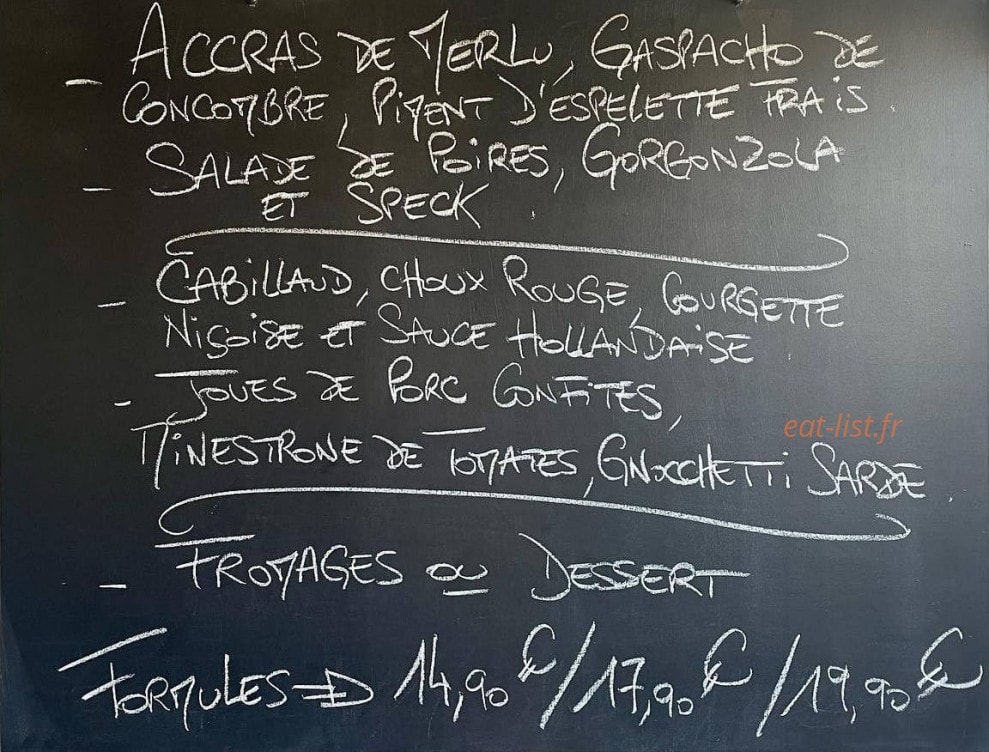 - ACCRAS DE MERLU, GASPACHO DE
CONCOMBRE, PIMENT D'ESPELETTE FRAIS.
- SALADE DE POIRES, GORGONZOLA
ET SPECK.
- CABILLAUD, CHOUX ROUGE, COURGETTE
NIÇOISE ET SAUCE HOLLANDAISE
- JOUES DE PORC CONFITES,
MINESTRONE DE TOMATES, GNOCCHETTI SARDE.
eat-list.fr
- FROMAGES OU DESSERT
FORMULES => 14,90€/17,90€/19,90€